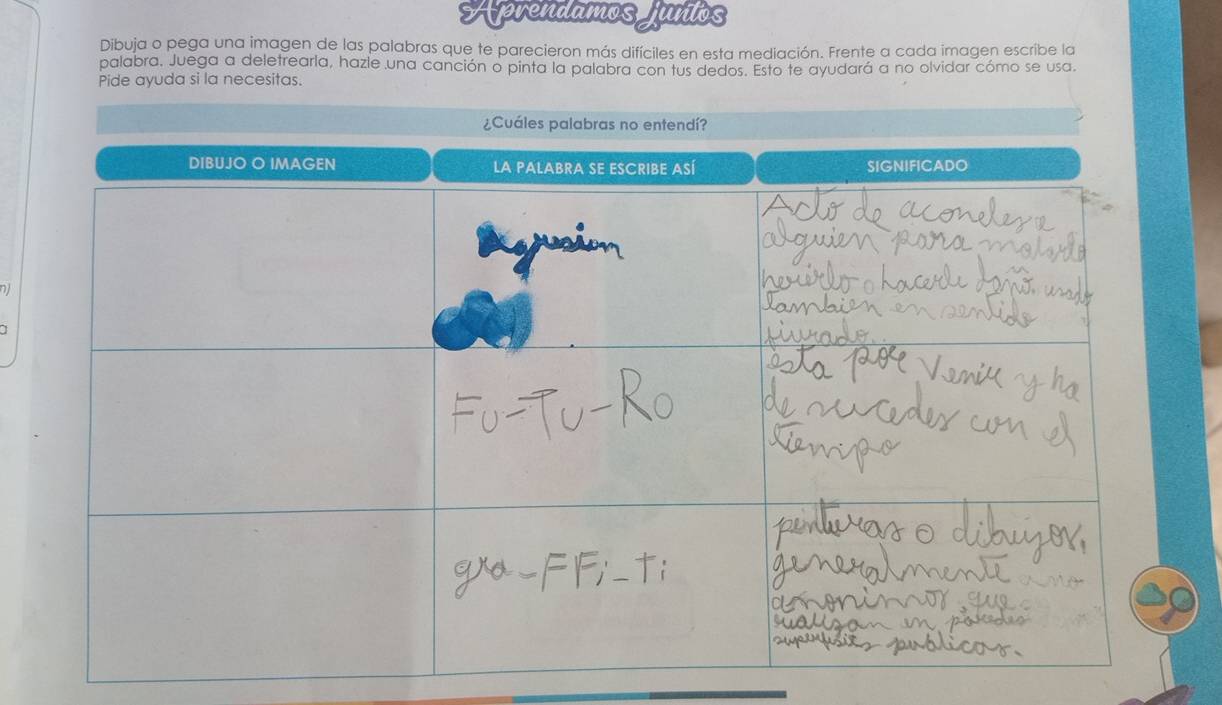 Aprendamos Juntos
Dibuja o pega una imagen de las palabras que te parecieron más difíciles en esta mediación. Frente a cada imagen escribe la
palabra. Juega a deletrearla, hazle una canción o pinta la palabra con tus dedos. Esto te ayudará a no olvidar cómo se usa.
Pide ayuda si la necesitas.
¿Cuáles palabras no entendí?
DIBUJO O IMAGEN
LA PALABRA SE ESCRIBE ASÍ
SIGNIFICADO
Agresion
Acto de acometer a
alguien para matarlo
herirlo o hacerle daño. usado
tambien en sentido
fiurado.
Fu-Tu-Ro
esta por venir y ha
de suceder con el
tiempo
gra-FFi-Ti
pinturas o dibujos,
generalmente
anonimos, que
realizan en paredes
publicas.
n)
a